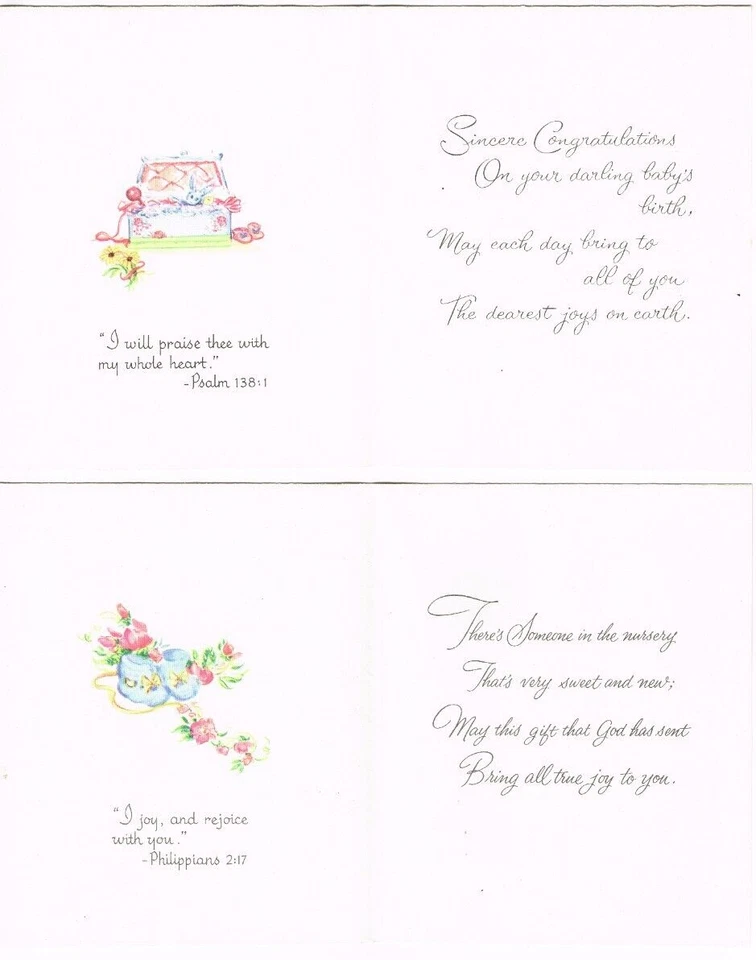 "I will praise thee with
my whole heart."
-Psalm 138:1
Sincere Congratulations
On your darling baby's
birth,
May each day bring to
all of you
The dearest joys on earth.
"I joy, and rejoice
with you."
-Philippians 2:17
There's Someone in the nursery
That's very sweet and new;
May this gift that God has sent
Bring all true joy to you.